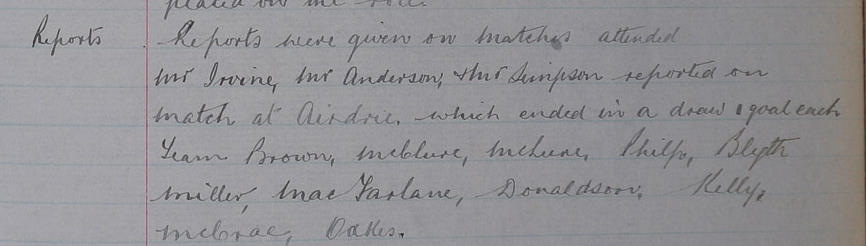 placed on the roll.
Reports
Reports were given on matches attended
Mr Irvine, Mr Anderson, & Mr Simpson reported on
match at Airdrie, which ended in a draw 1 goal each
Team Brown, McClure, McLure, Philp, Blyth
Miller, MacFarlane, Donaldson, Kelly,
McCrae, Oakes.